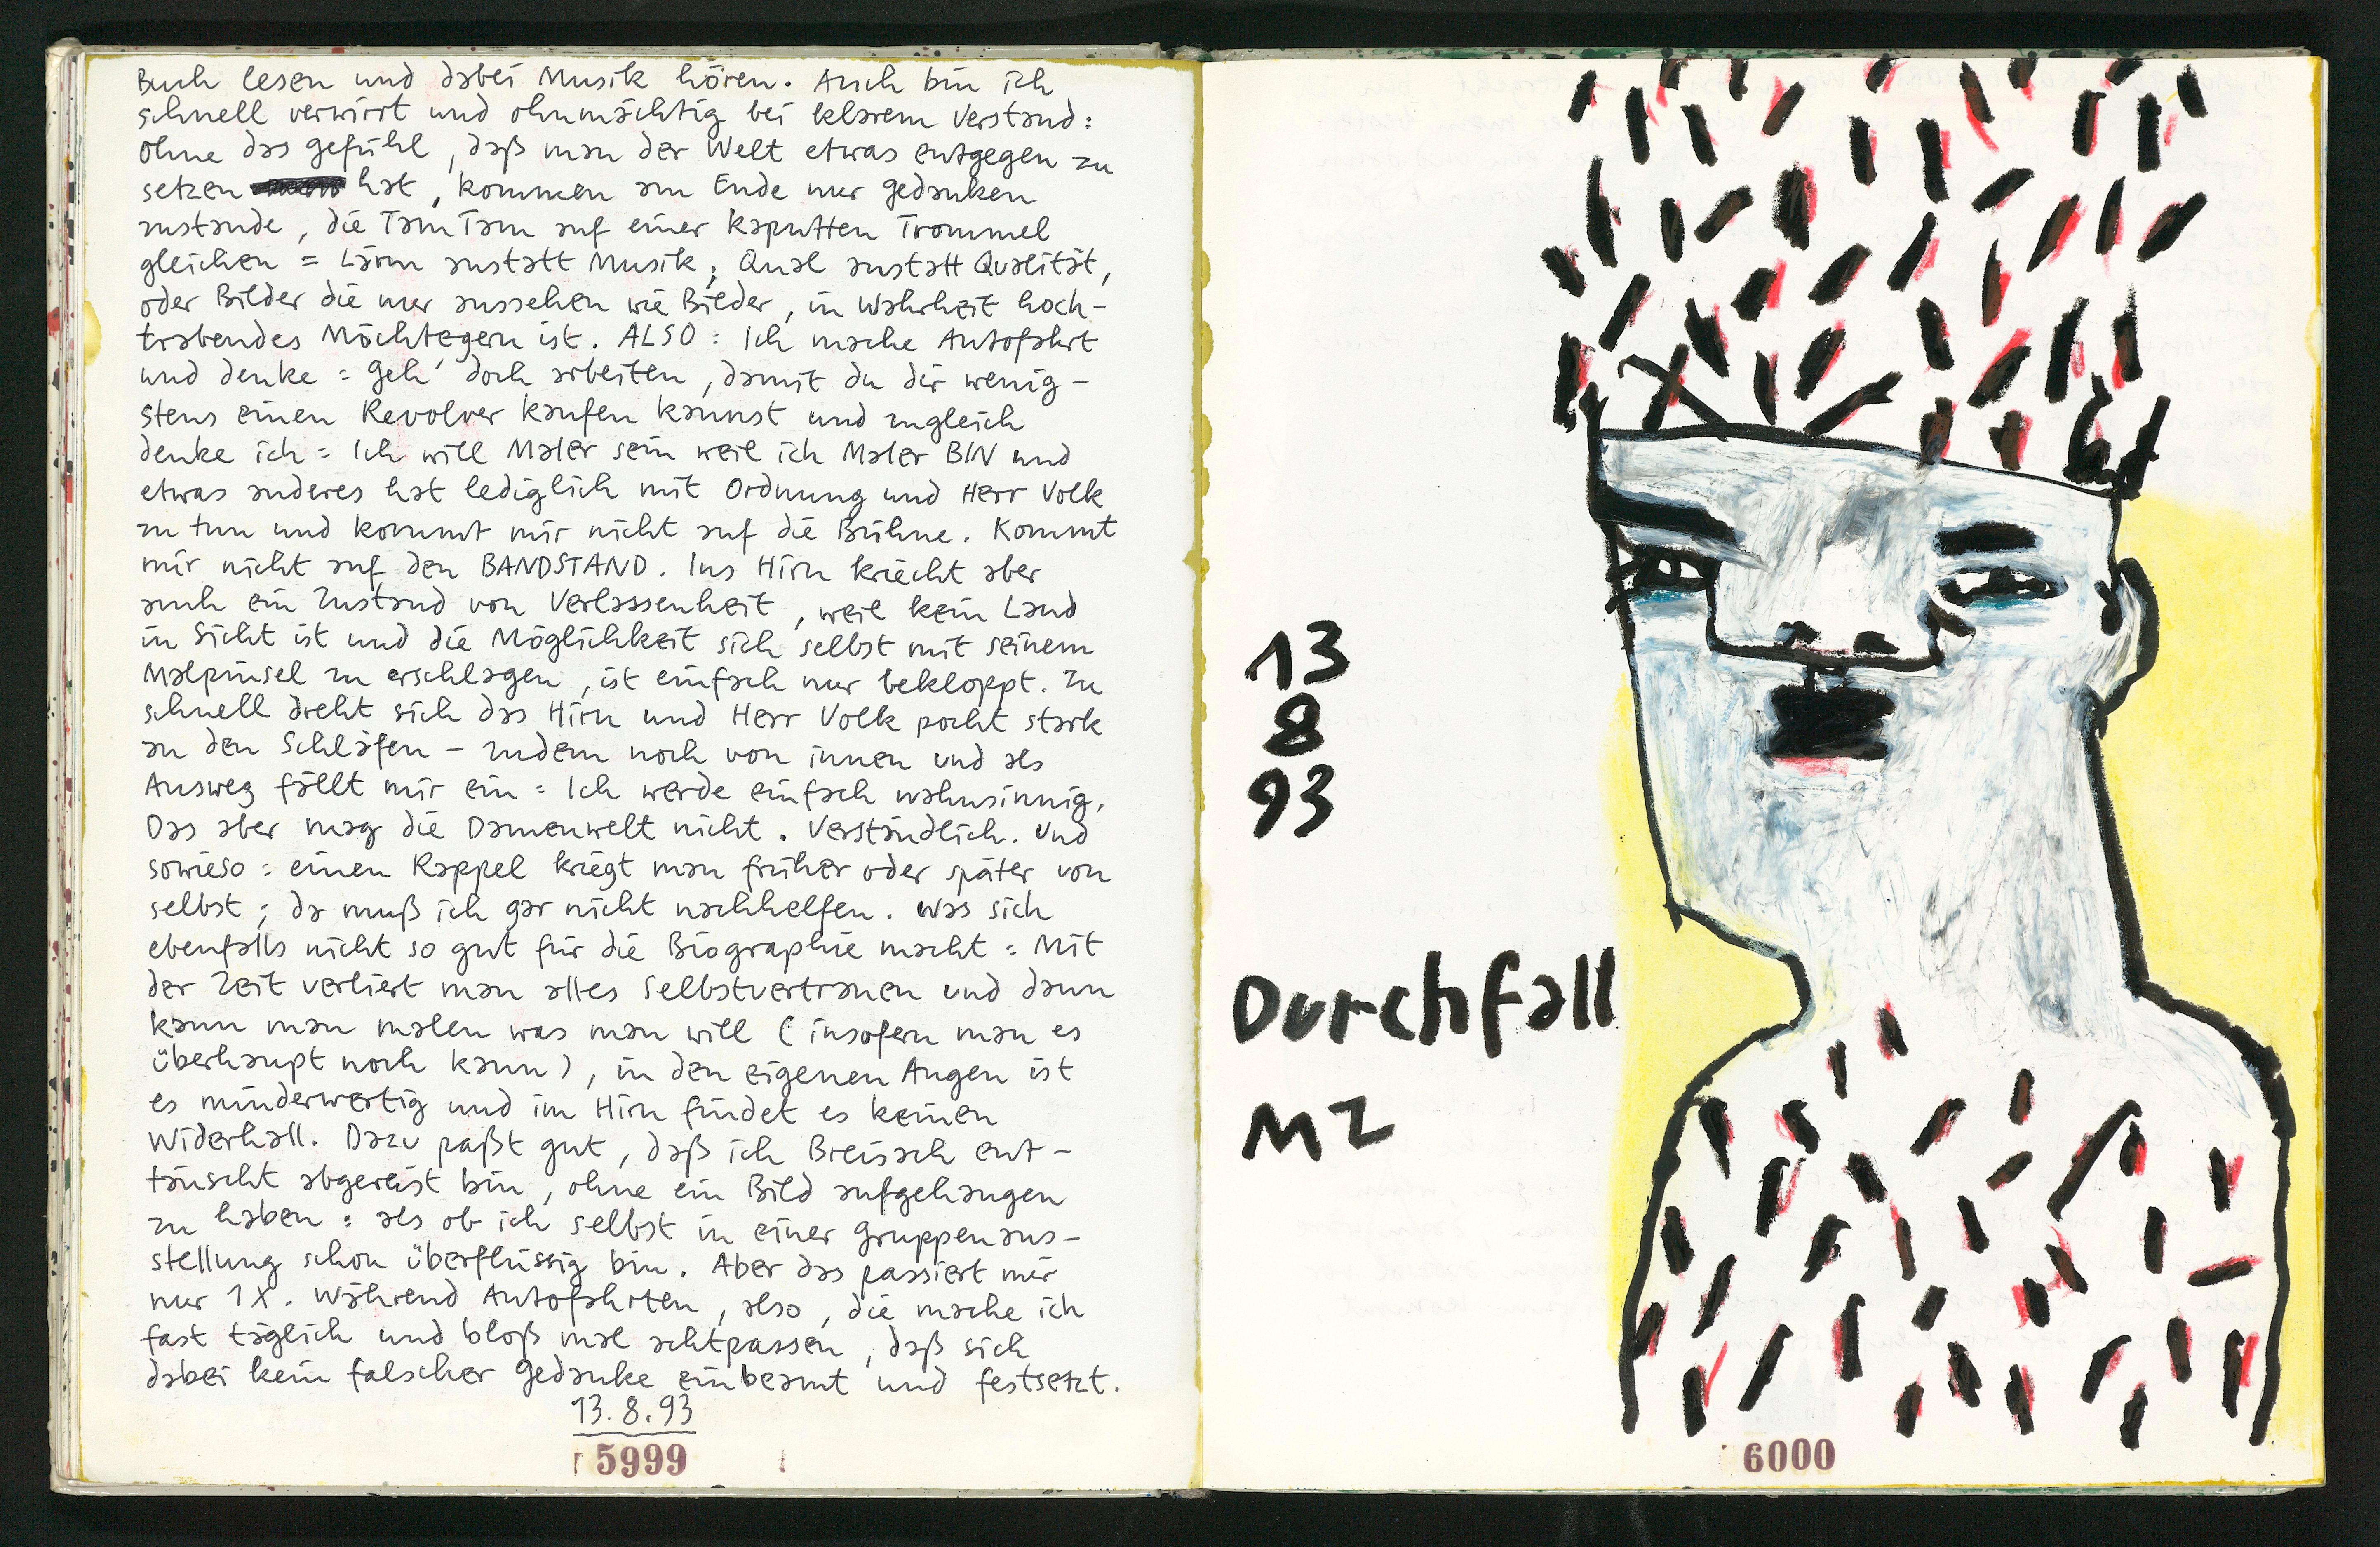 Buch lesen und dabei Musik hören. Auch bin ich
schnell verwirrt und ohnmächtig bei klarem Verstand:
ohne das gefühl, daß man der Welt etwas entgegen zu
setzen hat, kommen am Ende nur gedanken
zustande, die TamTam auf einer kaputten Trommel
gleichen = Lärm anstatt Musik; Qual anstatt Qualität,
oder Bilder die nur aussehen wie Bilder, in Wahrheit hoch-
trabendes Möchtegern ist. ALSO: Ich mache Autofahrt
und denke = geh' doch arbeiten, damit du dir wenig-
stens einen Revolver kaufen kannst und zugleich
denke ich = Ich will Maler sein weil ich Maler BIN und
etwas anderes hat lediglich mit Ordnung und Herr Volk
zu tun und kommt mir nicht auf die Bühne. Kommt
mir nicht auf den BANDSTAND. Ins Hirn kriecht aber
auch ein Zustand von Verlassenheit, weil kein Land
in Sicht ist und die Möglichkeit sich selbst mit seinem
Malpinsel zu erschlagen, ist einfach nur bekloppt. Zu
schnell dreht sich das Hirn und Herr Volk pocht stark
an den Schläfen - zudem noch von innen und als
Ausweg fällt mir ein = Ich werde einfach wahnsinnig.
Das aber mag die Damenwelt nicht. Verständlich. Und
sowieso = einen Rappel kriegt man früher oder später von
selbst; da muß ich gar nicht nachhelfen. Was sich
ebenfalls nicht so gut für die Biographie macht = Mit
der Zeit verliert man alles Selbstvertrauen und dann
kann man malen was man will (insofern man es
überhaupt noch kann), in den eigenen Augen ist
es minderwertig und im Hirn findet es keinen
Widerhall. Dazu paßt gut, daß ich Breisach ent-
täuscht abgereist bin, ohne ein Bild aufgehangen
zu haben = als ob ich selbst in einer Gruppenaus-
stellung schon überflüssig bin. Aber das passiert mir
nur 1X. Während Autofahrten, also, die mache ich
fast täglich und bloß mal achtpassen, daß sich
dabei kein falscher gedanke einbeamt und festsetzt.
13.8.93
5999
13
8
93
Durchfall
MZ
6000